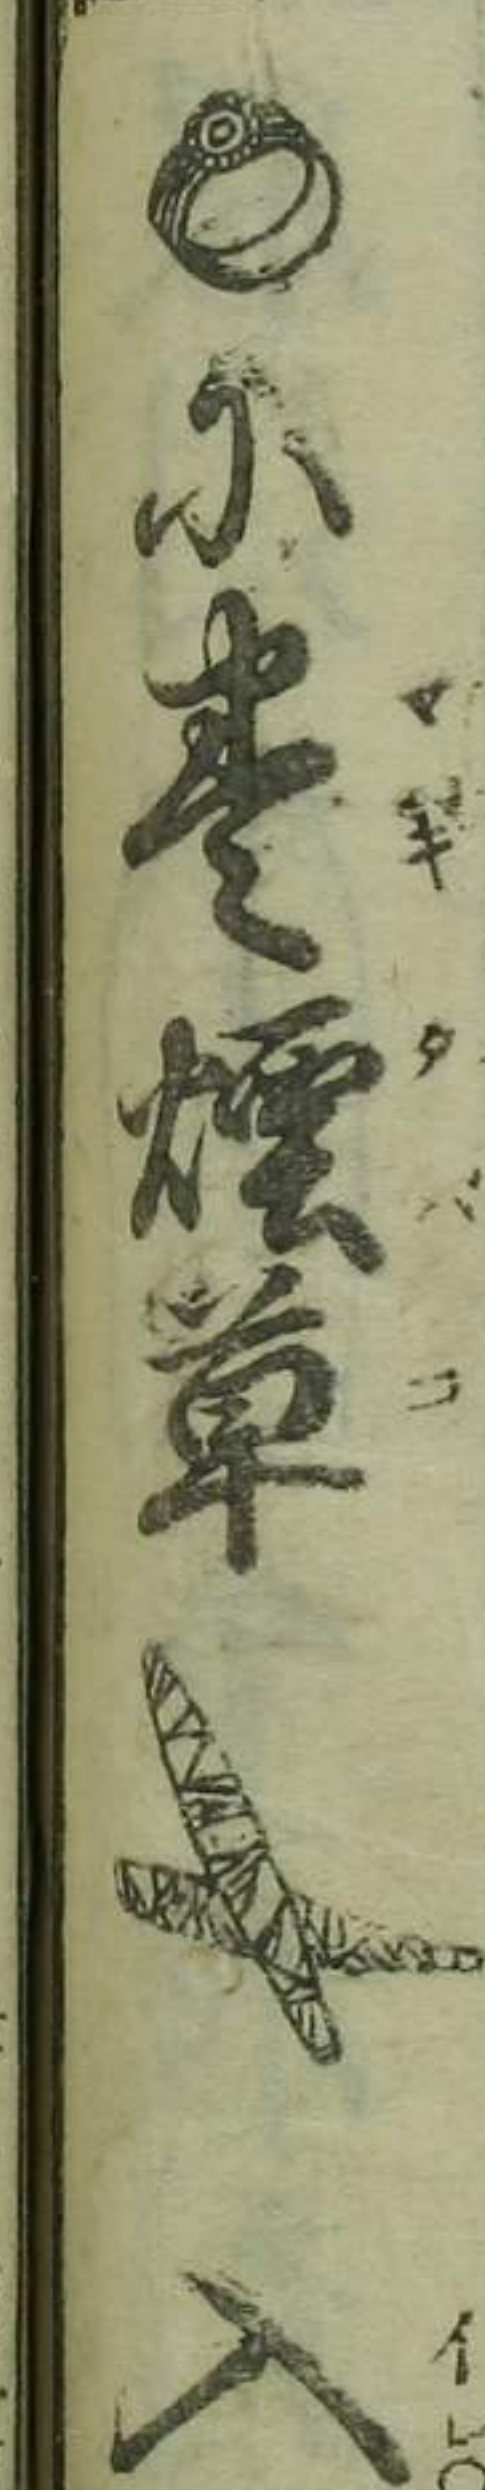 小巻煙草
マキタバコ
入